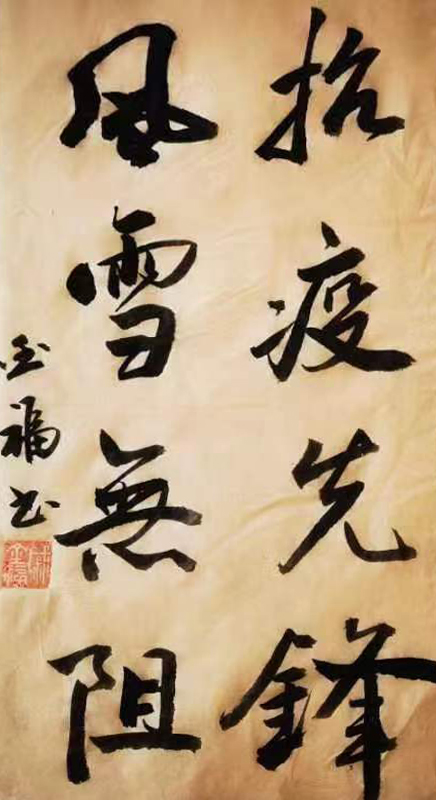 抗疫先鋒
風雪無阻
金福书